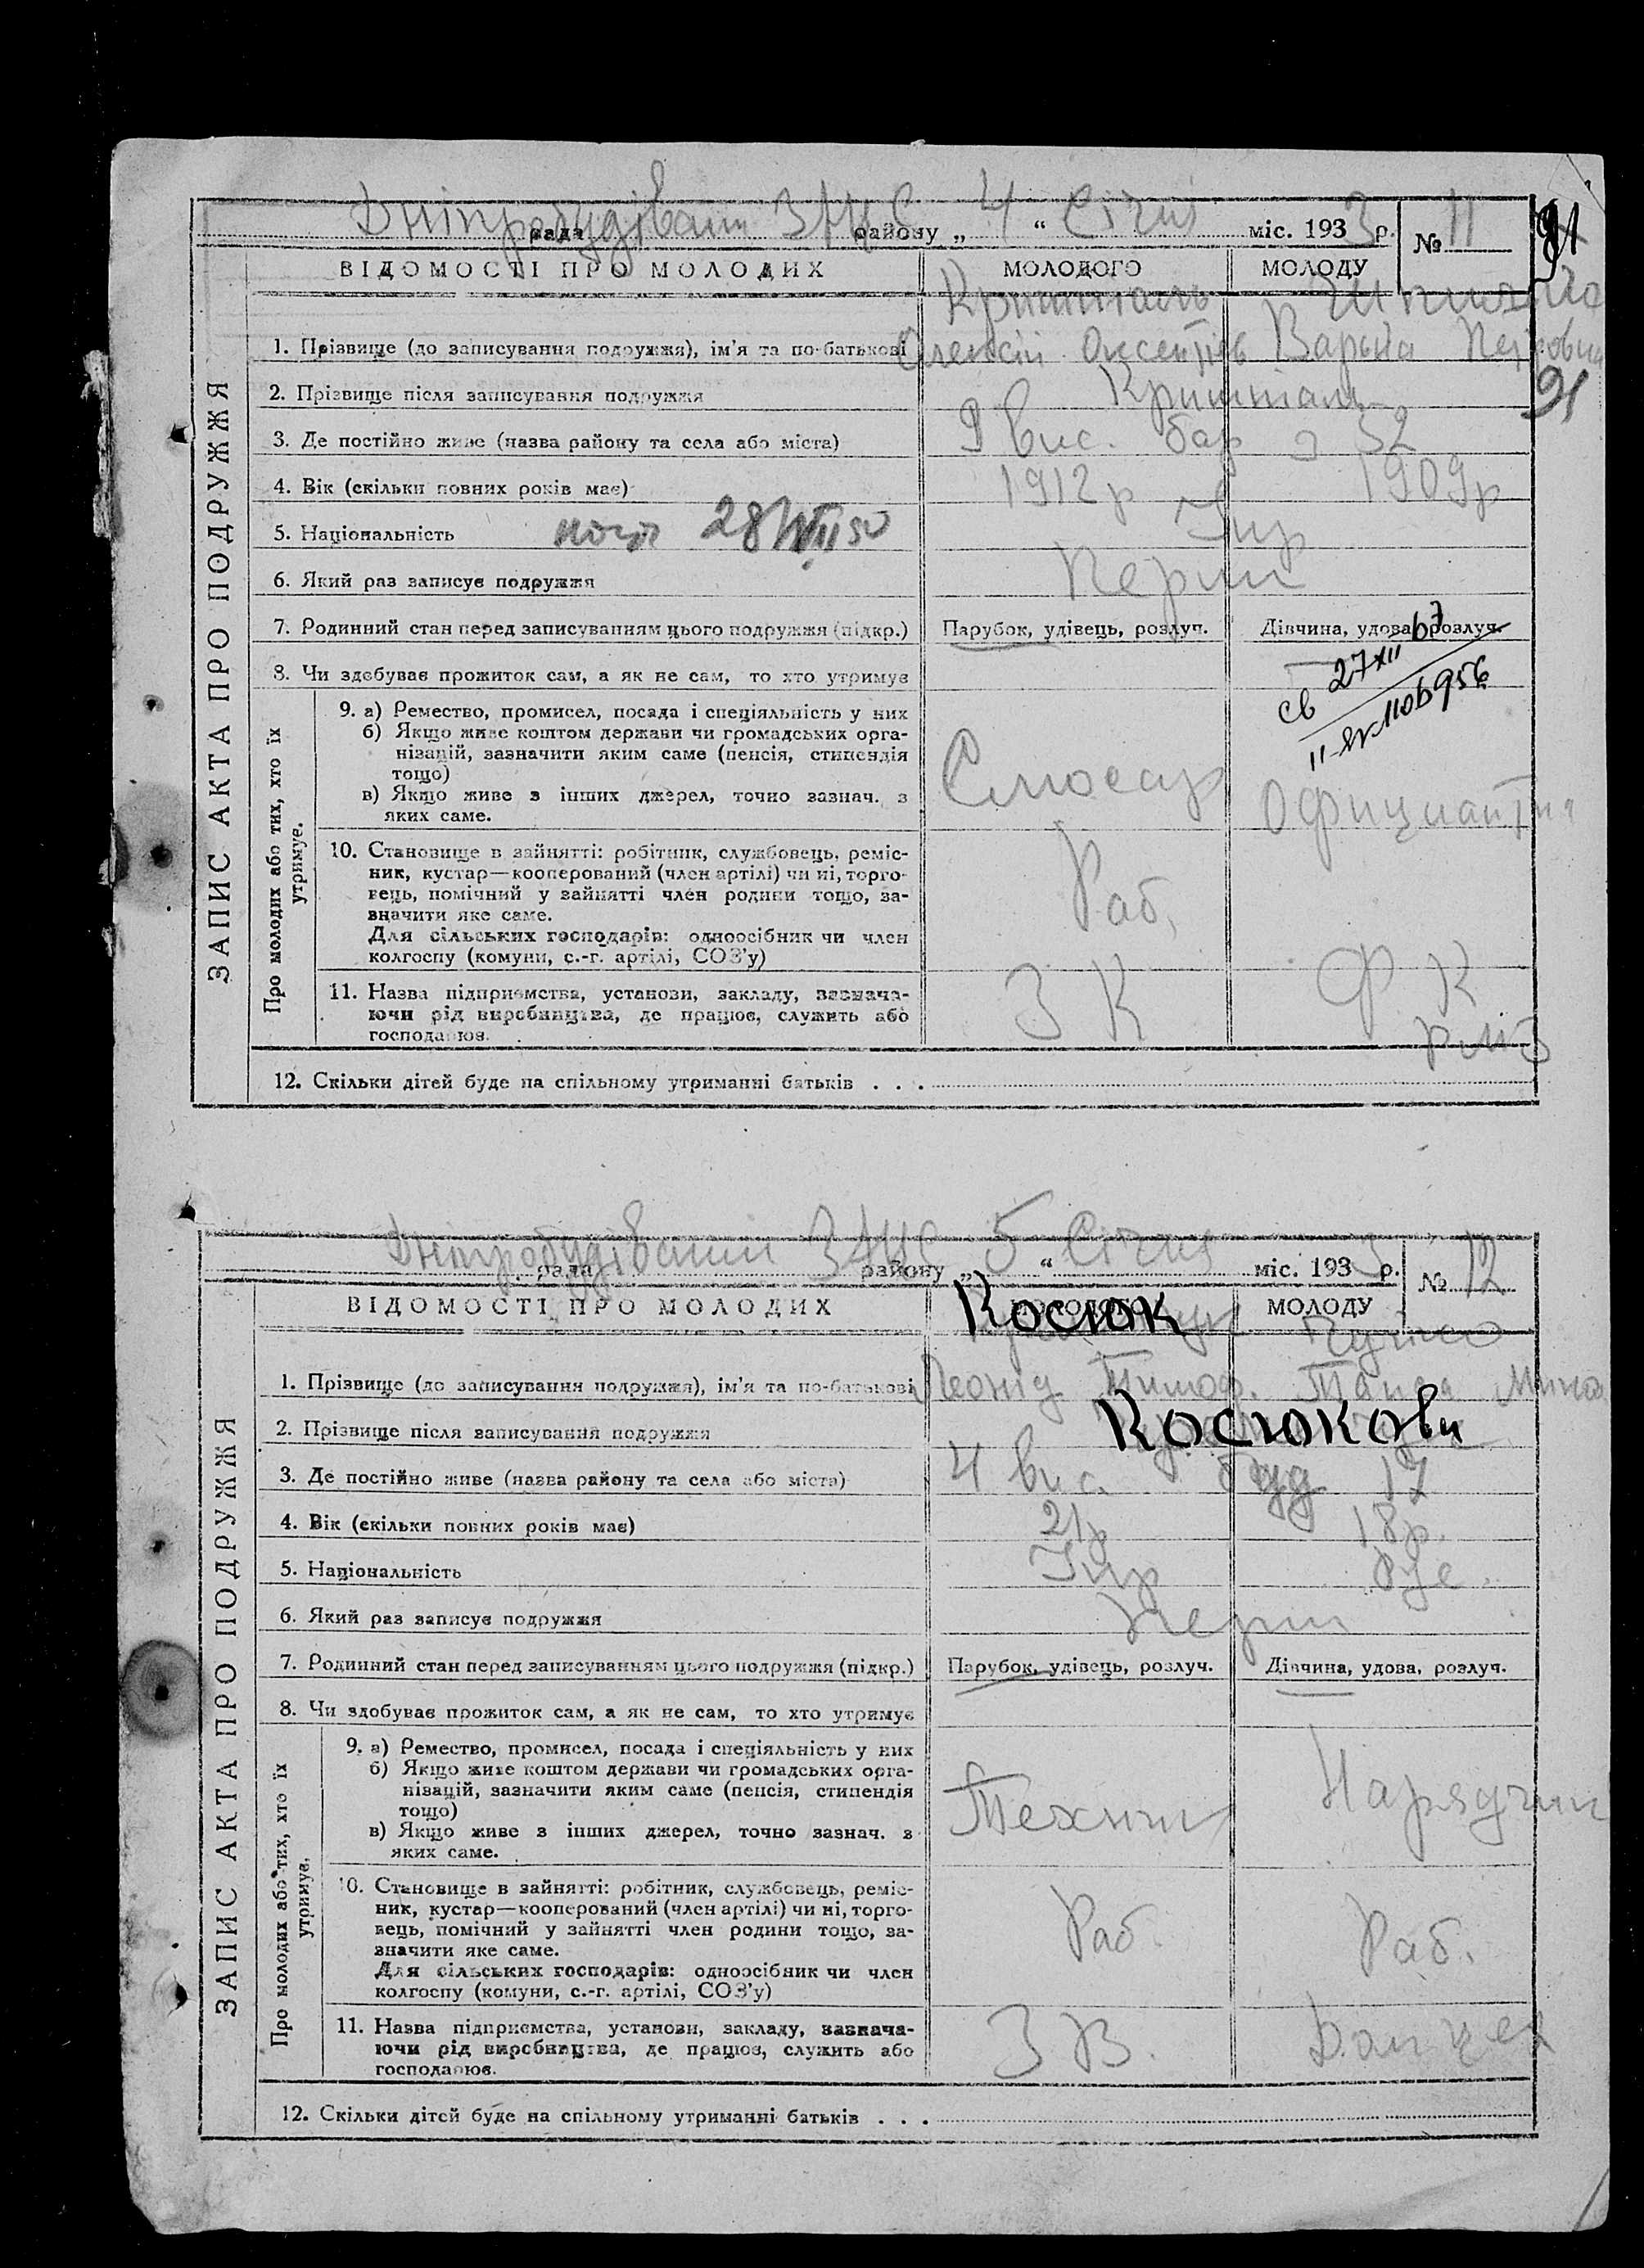 Дніпробудівський ЗАГС 4 Січня
рада району „ “ міс. 1933 р. № 11
91
ВІДОМОСТІ ПРО МОЛОДИХ МОЛОДОГО МОЛОДУ
Кришталь
1. Прізвище (до записування подружжя), ім'я та по-батькові Олексій Оксентіів Варвара Петровна
2. Прізвище після записування подружжя Кришталь
91
3. Де постійно живе (назва району та села або міста) 9 вис. бар 32
4. Вік (скільки повних років має) 1912 р 1909 р
5. Національність 28 VIII 50 Укр
6. Який раз записує подружжя Перш
7. Родинний стан перед записуванням цього подружжя (підкр.) Парубок, удівець, розлуч. Дівчина, удова, розлуч.
8. Чи здобуває прожиток сам, а як не сам, то хто утримує
св 27 XII 67
II 1106956
ЗАПИС АКТА ПРО ПОДРУЖЖЯ
Про молодих або тих, хто їх утримує.
9. а) Ремество, промисел, посада і спеціяльність у них
б) Якщо живе коштом держави чи громадських орга-
нізацій, зазначити яким саме (пенсія, стипендія
тощо)
в) Якщо живе з інших джерел, точно зазнач. з
яких саме.
Слюсар Официантка
10. Становище в зайнятті: робітник, службовець, реміс-
ник, кустар—кооперований (член артілі) чи ні, торго-
вець, помічний у зайнятті член родини тощо, за-
значити яке саме.
Для сільських господарів: одноосібник чи член
колгоспу (комуни, с.-г. артілі, СОЗ'у)
Раб.
11. Назва підприємства, установи, закладу, зазнача-
ючи рід виробництва, де працює, служить або
господарює.
З К Ф К
12. Скільки дітей буде на спільному утриманні батьків . . .
Дніпробудівський ЗАГС 5 Січня
рада району „ “ міс. 1933 р. № 12
ВІДОМОСТІ ПРО МОЛОДИХ МОЛОДОГО МОЛОДУ
Косюк
1. Прізвище (до записування подружжя), ім'я та по-батькові Леонід Тимоф.
2. Прізвище після записування подружжя Косюкови
3. Де постійно живе (назва району та села або міста) 4 вис. буд 17
4. Вік (скільки повних років має) 21 р 18 р.
5. Національність Укр Рус.
6. Який раз записує подружжя Перш
7. Родинний стан перед записуванням цього подружжя (підкр.) Парубок, удівець, розлуч. Дівчина, удова, розлуч.
8. Чи здобуває прожиток сам, а як не сам, то хто утримує
ЗАПИС АКТА ПРО ПОДРУЖЖЯ
Про молодих або тих, хто їх утримує.
9. а) Ремество, промисел, посада і спеціяльність у них
б) Якщо живе коштом держави чи громадських орга-
нізацій, зазначити яким саме (пенсія, стипендія
тощо)
в) Якщо живе з інших джерел, точно зазнач. з
яких саме.
Технік Нарядчик
10. Становище в зайнятті: робітник, службовець, реміс-
ник, кустар—кооперований (член артілі) чи ні, торго-
вець, помічний у зайнятті член родини тощо, за-
значити яке саме.
Для сільських господарів: одноосібник чи член
колгоспу (комуни, с.-г. артілі, СОЗ'у)
Раб. Раб.
11. Назва підприємства, установи, закладу, зазнача-
ючи рід виробництва, де працює, служить або
господарює.
З В.
12. Скільки дітей буде на спільному утриманні батьків . . .